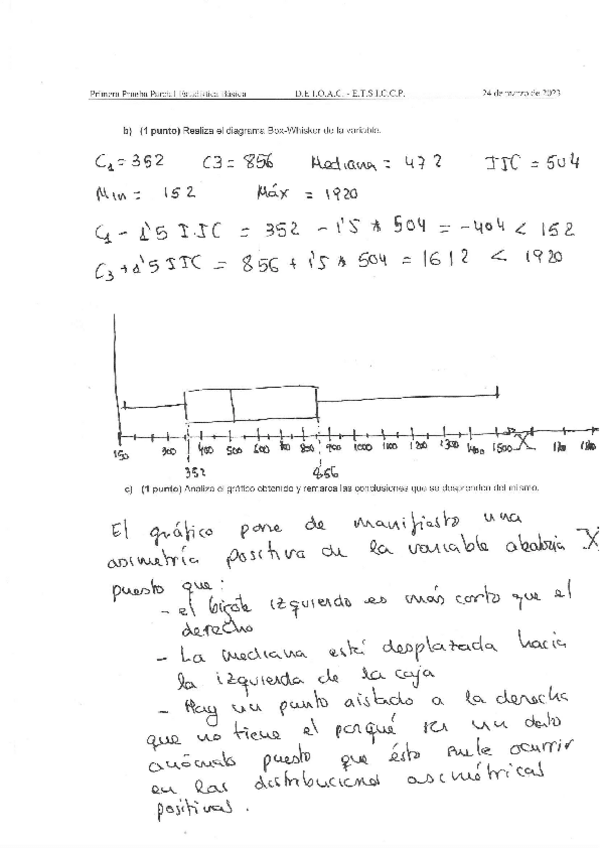 Primera Prueba Parcial Estadística Básica D.E.I.O.A.C. - E.T.S.I.C.C.P. 24 de marzo de 2023
b) (1 punto) Realiza el diagrama Box-Whisker de la variable.
C1 = 352 C3 = 856 Mediana = 472 IIC = 504
Min = 152 Máx = 1920
C1 - 1'5 IIC = 352 - 1'5 * 504 = -404 < 152
C3 + 1'5 IIC = 856 + 1'5 * 504 = 1612 < 1920
150 300 400 500 600 700 800 900 1000 1100 1200 1300 1400 1500 X
352 856
c) (1 punto) Analiza el gráfico obtenido y remarca las conclusiones que se desprenden del mismo.
El gráfico pone de manifiesto una
asimetría positiva de la variable aleatoria X
puesto que:
- el bigote izquierdo es más corto que el
derecho
- La mediana está desplazada hacia
la izquierda de la caja
- Hay un punto aislado a la derecha
que no tiene el porqué ser un dato
anómalo puesto que ésto suele ocurrir
en las distribuciones asimétricas
positivas.